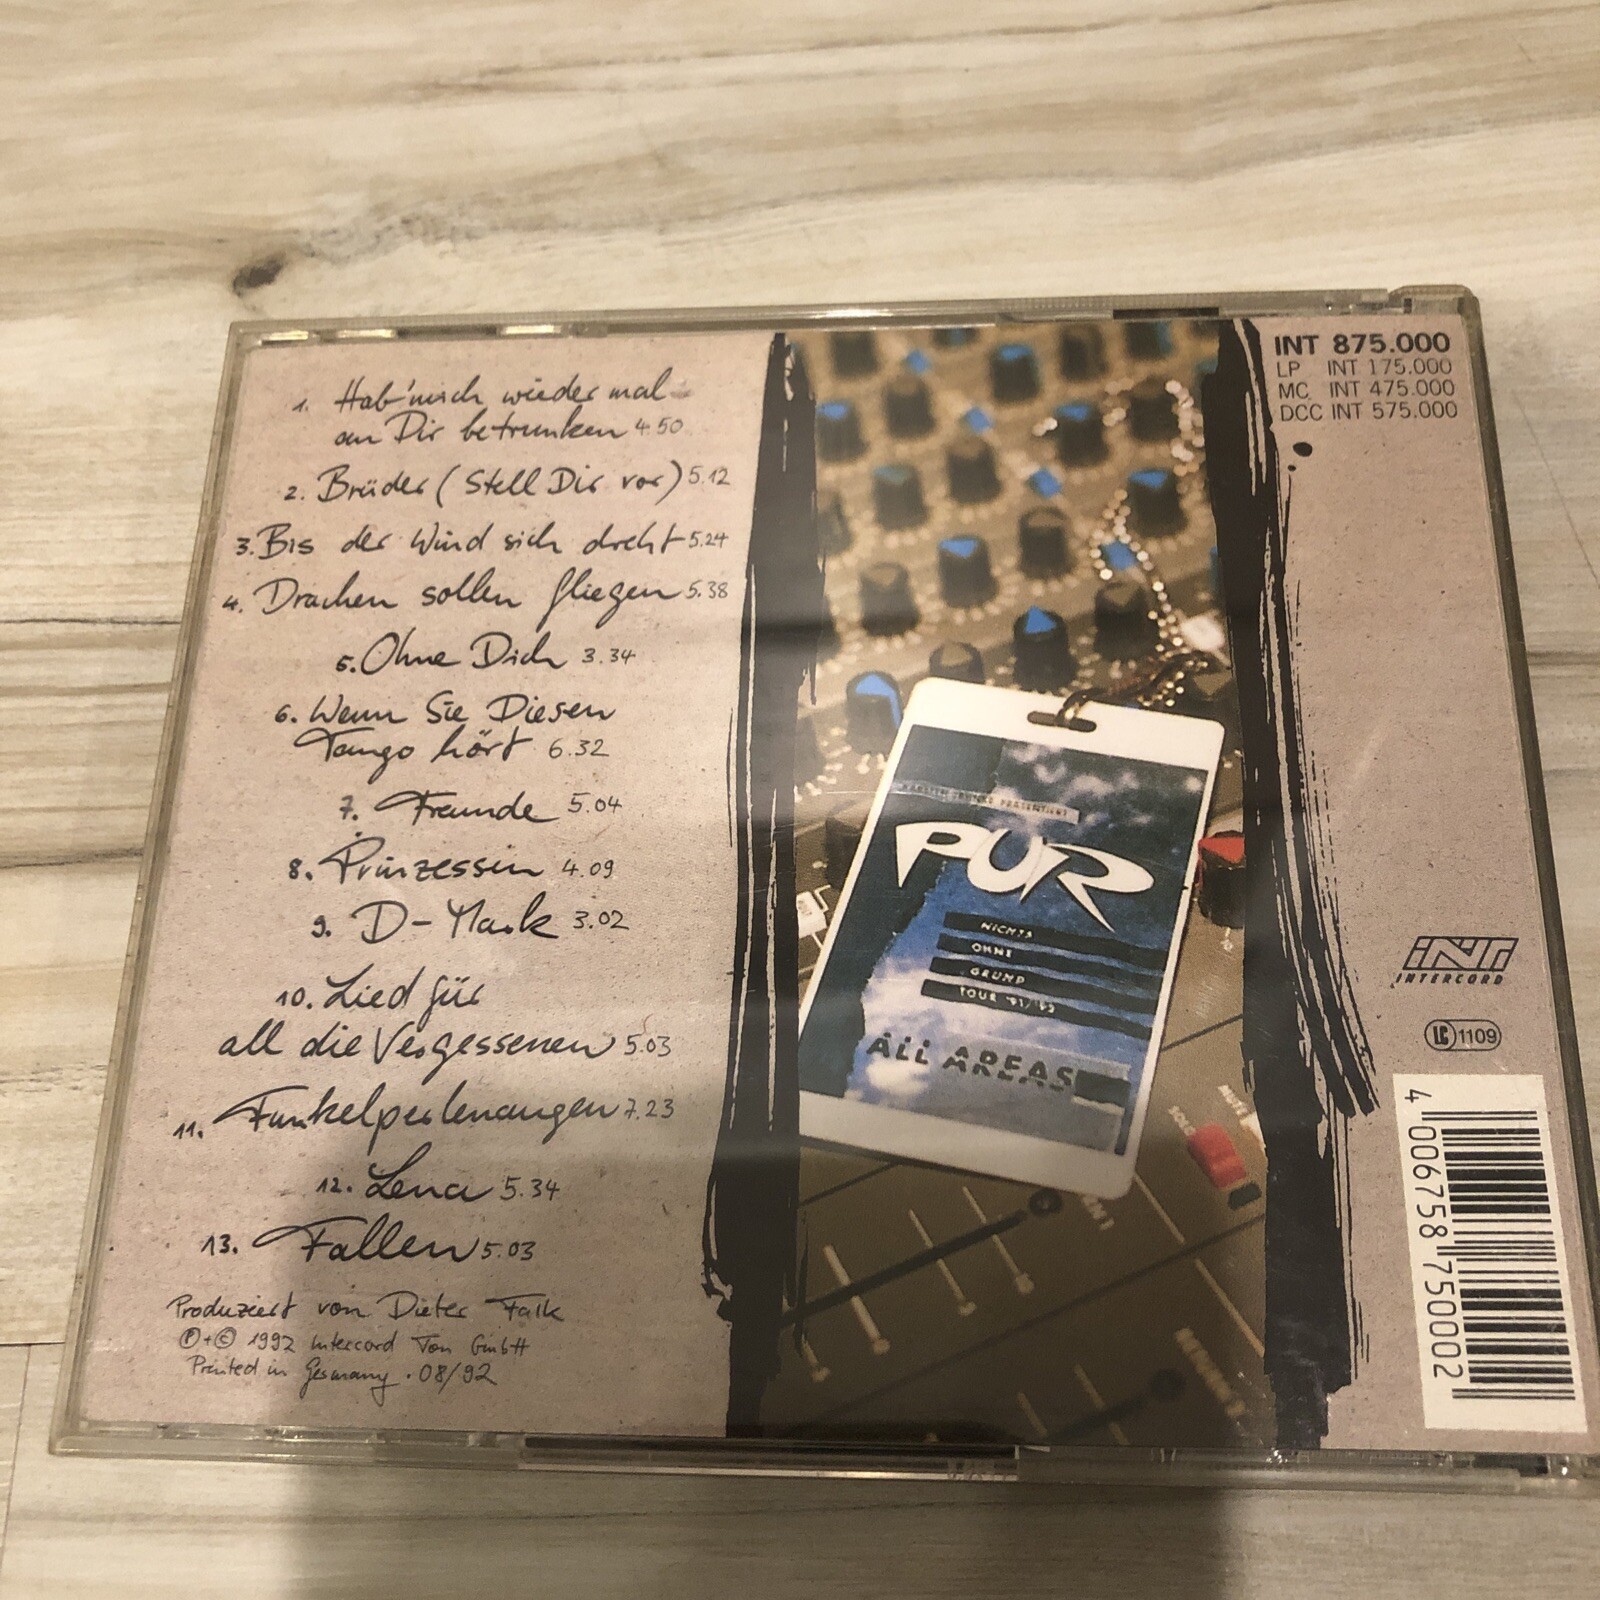 1. Hab' mich wieder mal
an Dir betrunken 4.50
2. Brüder (Stell Dir vor) 5.12
3. Bis der Wind sich dreht 5.24
4. Drachen sollen fliegen 5.38
5. Ohne Dich 3.34
6. Wenn Sie Diesen
Tango hört 6.32
7. Freunde 5.04
8. Prinzessin 4.09
9. D-Mark 3.02
10. Lied für
all die Vergessenen 5.03
11. Funkelperlenaugen 7.23
12. Lena 5.34
13. Fallen 5.03
Produziert von Dieter Falk
℗+© 1992 Intercord Ton GmbH
Printed in Germany · 08/92
PRÄSENTIERT
PUR
NICHTS
OHNE
GRUND
TOUR '91/'92
ALL AREAS
SOLO
MUTE
INT 875.000
LP INT 175.000
MC INT 475.000
DCC INT 575.000
INT
INTERCORD
LC 1109
4 006758 750002